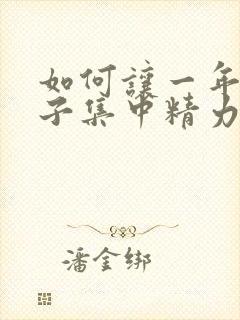 如何讓一年
子集中精力
潘金綁